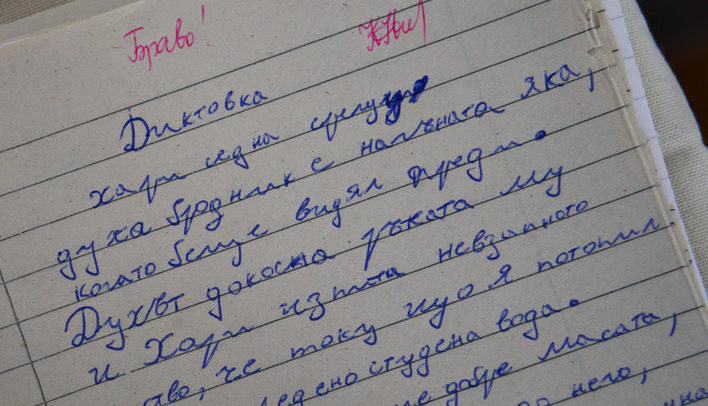 Браво!
Диктовка
Хари седна срещу
духа бродник с навъната яка,
когото беше видял преди.
Духът докосна ръката му
и Хари изпита невзапното
во, че току що я потопил
ледено студена вода.
добре масата,
него,